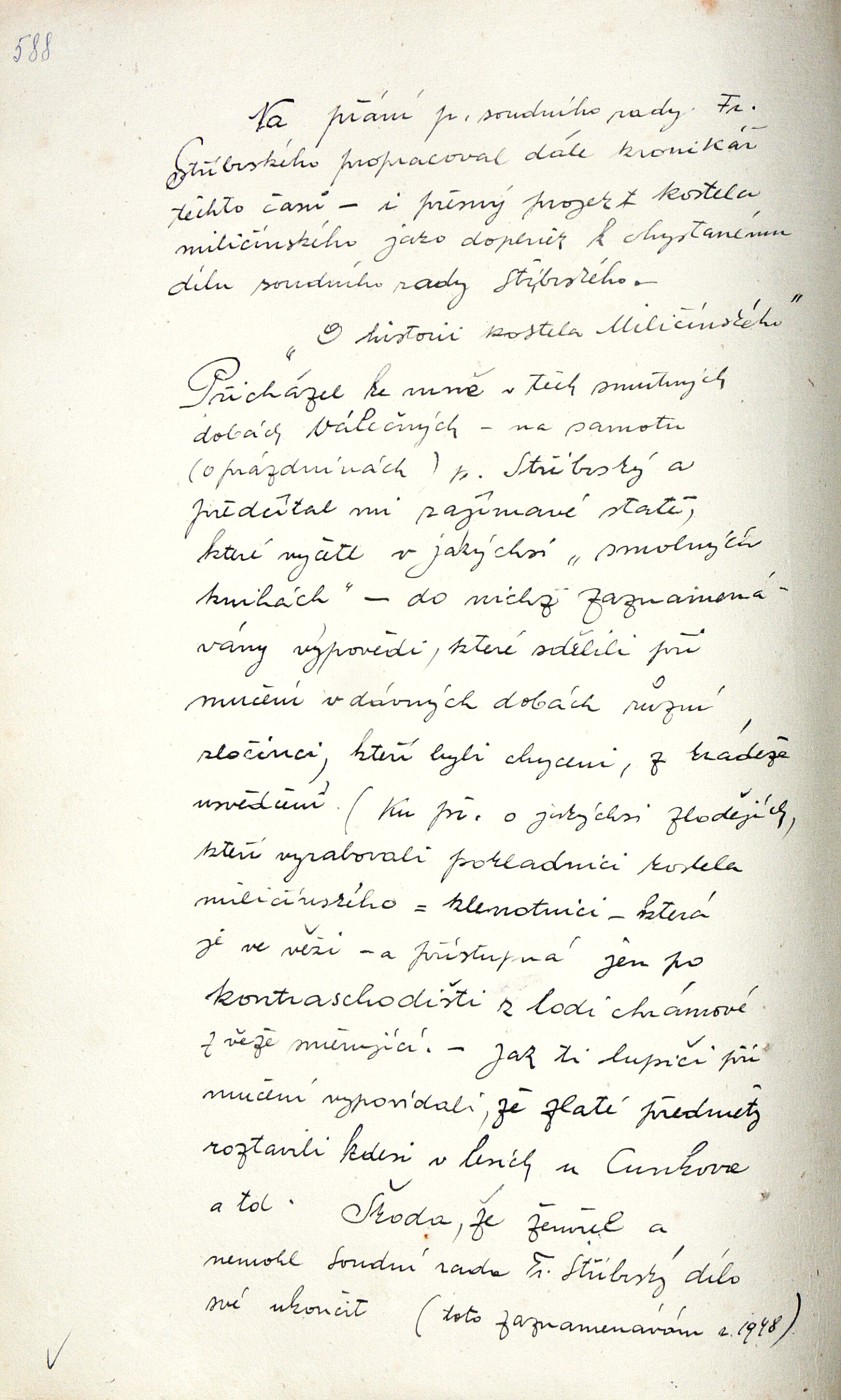 588
Na přání p. soudního rady Fr.
Stříbrského propracoval dále kronikář
těchto časů – i přesný projekt kostela
miličínského jako doplněk k chystanému
dílu soudního rady Stříbrského.
„O historii kostela Miličínského"
Přicházel ke mně v těch smutných
dobách válečných – na samotu
(o prázdninách) p. Stříbrský a
předčítal mi zajímavé statě,
které vyčetl v jakýchsi „smolných
knihách" – do nichž zaznamená-
vány výpovědi, které sdělili při
mučení v dávných dobách různí
zločinci, kteří byli chyceni, z krádeže
usvědčeni. (Ku př. o jakýchsi zlodějích,
kteří vyrabovali pokladnici kostela
miličínského = klenotnici – která
je ve věži – a přístupná jen po
kontraschodišti z lodi chrámové
z věže směrující. – Jak ti lupiči při
mučení vypovídali, že zlaté předměty
roztavili kdesi v lesích u Cunkova
atd. Škoda, že zemřel a
nemohl soudní rada Fr. Stříbrský dílo
své ukončit (toto zaznamenávám r. 1948)